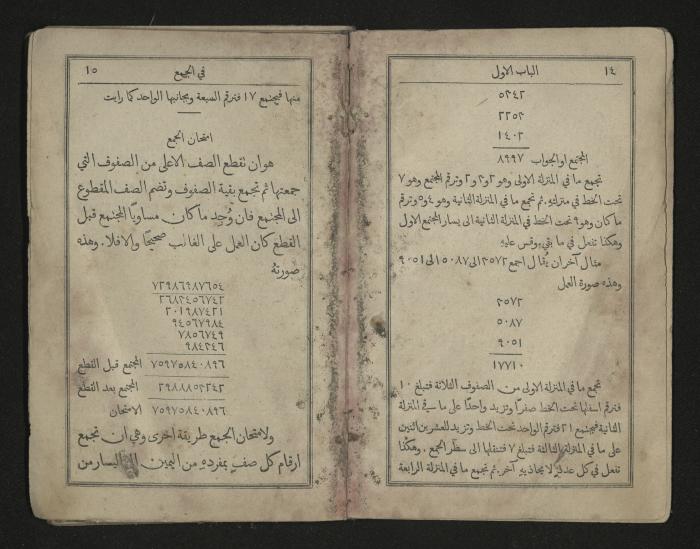 ١٤ الباب الاول
٥٣٤٢
٢٢٥٣
١٤٠٢
المجتمع او الجواب ٨٩٩٧
تجمع ما في المنزلة الاولى وهو ٢و٣و٢ وترقم المجتمع وهو ٧
تحت الخط في منزلته. ثم تجمع ما في المنزلة الثانية وهو ٤و٥ وترقم
ما كان وهو ٩ تحت الخط في المنزلة الثانية الى يسار المجتمع الاول
وهكذا تفعل في ما بقي وقس عليه
مثال آخر ان يُقال اجمع ٣٥٧٢ الى ٥٠٨٧ الى ٩٠٥١
وهذه صورة العمل
٣٥٧٢
٥٠٨٧
٩٠٥١
١٧٧١٠
تجمع ما في المنزلة الاولى من الصفوف الثلاثة فتبلغ ١٠
فترقم اسفلها تحت الخط صفرًا وتزيد واحدًا على ما في المنزلة
الثانية فيجتمع ٢١ فترقم الواحد تحت الخط وتزيد للعشرين اثنين
على ما في المنزلة الثالثة فتبلغ ٧ فتنقلها الى سطر الجمع. وهكذا
تفعل في كل عدد لا يحاذيه آخر. ثم تجمع ما في المنزلة الرابعة
في الجمع ١٥
منها فيجتمع ١٧ فترقم السبعة وبجانبها الواحد كما رايت
امتحان الجمع
هو ان تقطع الصف الاعلى من الصفوف التي
جمعتها ثم تجمع بقية الصفوف وتضم الصف المقطوع
الى المجتمع فان وُجد ما كان مساويًا المجتمع قبل
القطع كان العمل على الغالب صحيحًا والا فلا. وهذه
صورتهُ
٧٢٩٨٦٩٨٧٦٥٤
٢٦٨٣٤٥٦٧٤٢
٢٠١٩٨٧٤٢١
٩٤٥٦٧٩٨٤
٧٨٥٦٧٤٩
٩٨٤٣٤٦
٧٥٩٧٥٨٤٠٨٩٦ المجتمع قبل القطع
٢٩٨٨٨٥٣٢٤٢ المجتمع بعد القطع
٧٥٩٧٥٨٤٠٨٩٦ الامتحان
ولامتحان الجمع طريقة اخرى وهي ان تجمع
ارقام كل صف بمفردهِ من اليمين الى اليسار من